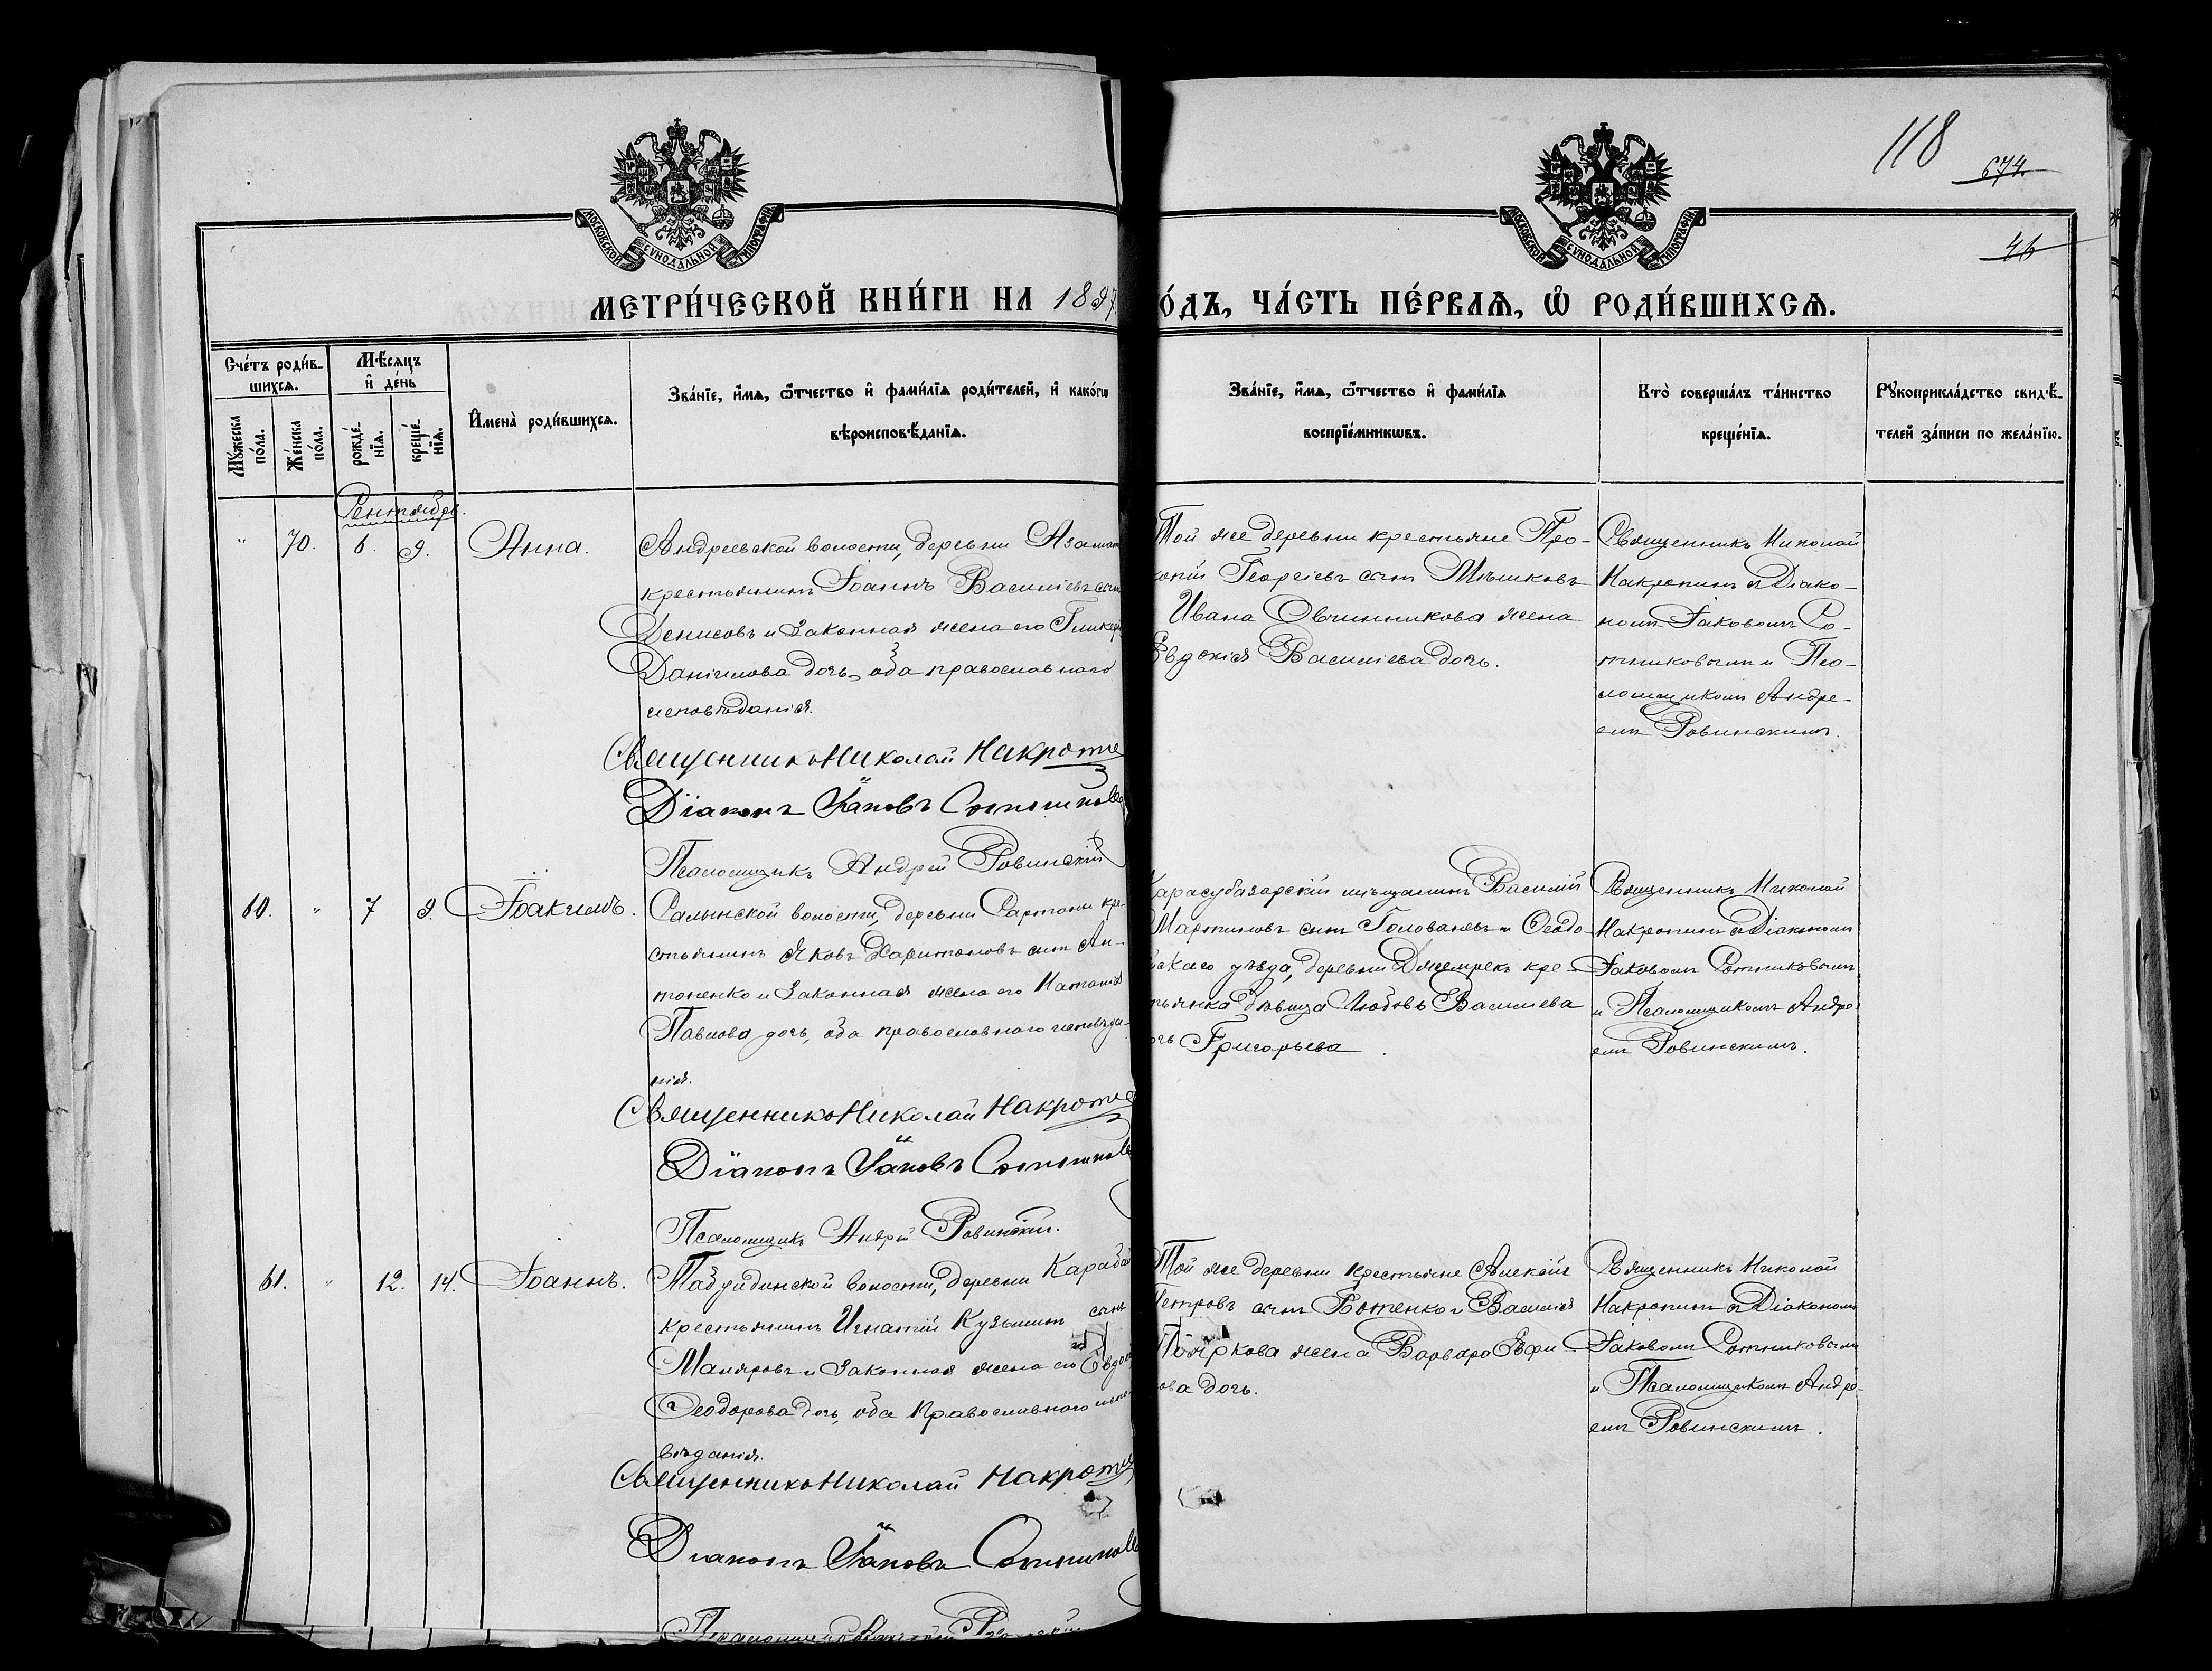 118
674.
46
МОСКОВСКОЙ СѴНОДАЛЬНОЙ ТИПОГРАФІИ
МОСКОВСКОЙ СѴНОДАЛЬНОЙ ТИПОГРАФІИ
МЕТРИ́ЧЕСКОЙ КНИ́ГИ НА 1897
О́ДЪ, ЧА́СТЬ ПЕ́РВАѦ, Ѽ РОДИ́ВШИХСѦ.
Сче́тъ роди́в-
шихсѧ.
Мѣ́сѧцъ
и҆ де́нь
Мꙋ́жеска по́ла.
Же́нска по́ла.
рожде́нїѧ.
креще́нїѧ.
И҆мена̀ роди́вшихсѧ.
Зва́нїе, и҆́мѧ, ѻ҆́тчество и҆ фами́лїѧ роди́телей, и҆ како́гѡ
вѣроисповѣ́данїѧ.
Зва́нїе, и҆́мѧ, ѻ҆́тчество и҆ фами́лїѧ
воспрїе́мникѡвъ.
Кто̀ соверша́лъ та́инство
креще́нїѧ.
Рꙋкоприкла́дство свидѣ́-
телей за́писи по жела́нїю.
Сентябрь.
" 70. 6. 9. Анна.
Андреевской волости, деревни
крестьянинъ Іоаннъ Василіевъ сынъ
Денисовъ и законная жена его
Даніилова дочь, оба православнаго
исповѣданія.
Священникъ Николай
Діаконъ Іаковъ Сотников
Псаломщикъ Андрей Ровинскій
Той же деревни крестьяне Про-
копій Георгіевъ сынъ Мѣшковъ
Ивана Овчинникова жена
Евдокія Василіева дочь.
Священникъ Николай
Накропинъ съ Діако-
номъ Іаковомъ Со-
тниковымъ и Пса-
ломщикомъ Андре-
емъ Ровинскимъ.
60. " 7 9. Іоакимъ.
Салынской волости, деревни Сартаны кре-
стьянинъ Яковъ Харитоновъ сынъ Ан-
тоненко и законная жена его Наталія
Павлова дочь, оба православнаго исповѣда-
нія.
Священникъ Николай
Діаконъ Іаковъ Сотников
Псаломщикъ Андрей Ровинскій.
Карасубазарскій мѣщанинъ Василій
Мартиновъ сынъ Голованевъ и Ѳеодо-
йскаго уѣзда, деревни Джемрекъ кре-
тьянка дѣвица Любовь Василіева
очь Григорьева.
Священникъ Николай
Накропинъ съ Діакономъ
Іаковомъ Сотниковымъ
и Псаломщикомъ Андре-
емъ Ровинскимъ.
61. " 12. 14. Іоаннъ.
Табулдинской волости, деревни
крестьянинъ Игнатій Кузьминъ сынъ
Маляровъ и законная жена его
Ѳеодорова дочь, оба православнаго испо-
вѣданія.
Священникъ Николай
Діаконъ Іаковъ Сотников
Той же деревни крестьяне Алексій
Петровъ сынъ Ботенко и Василія
Пояркова жена Варвара Ефи-
ова дочь.
Священникъ Николай
Накропинъ съ Діакономъ
Іаковомъ Сотниковымъ
и Псаломщикомъ Андре-
емъ Ровинскимъ.